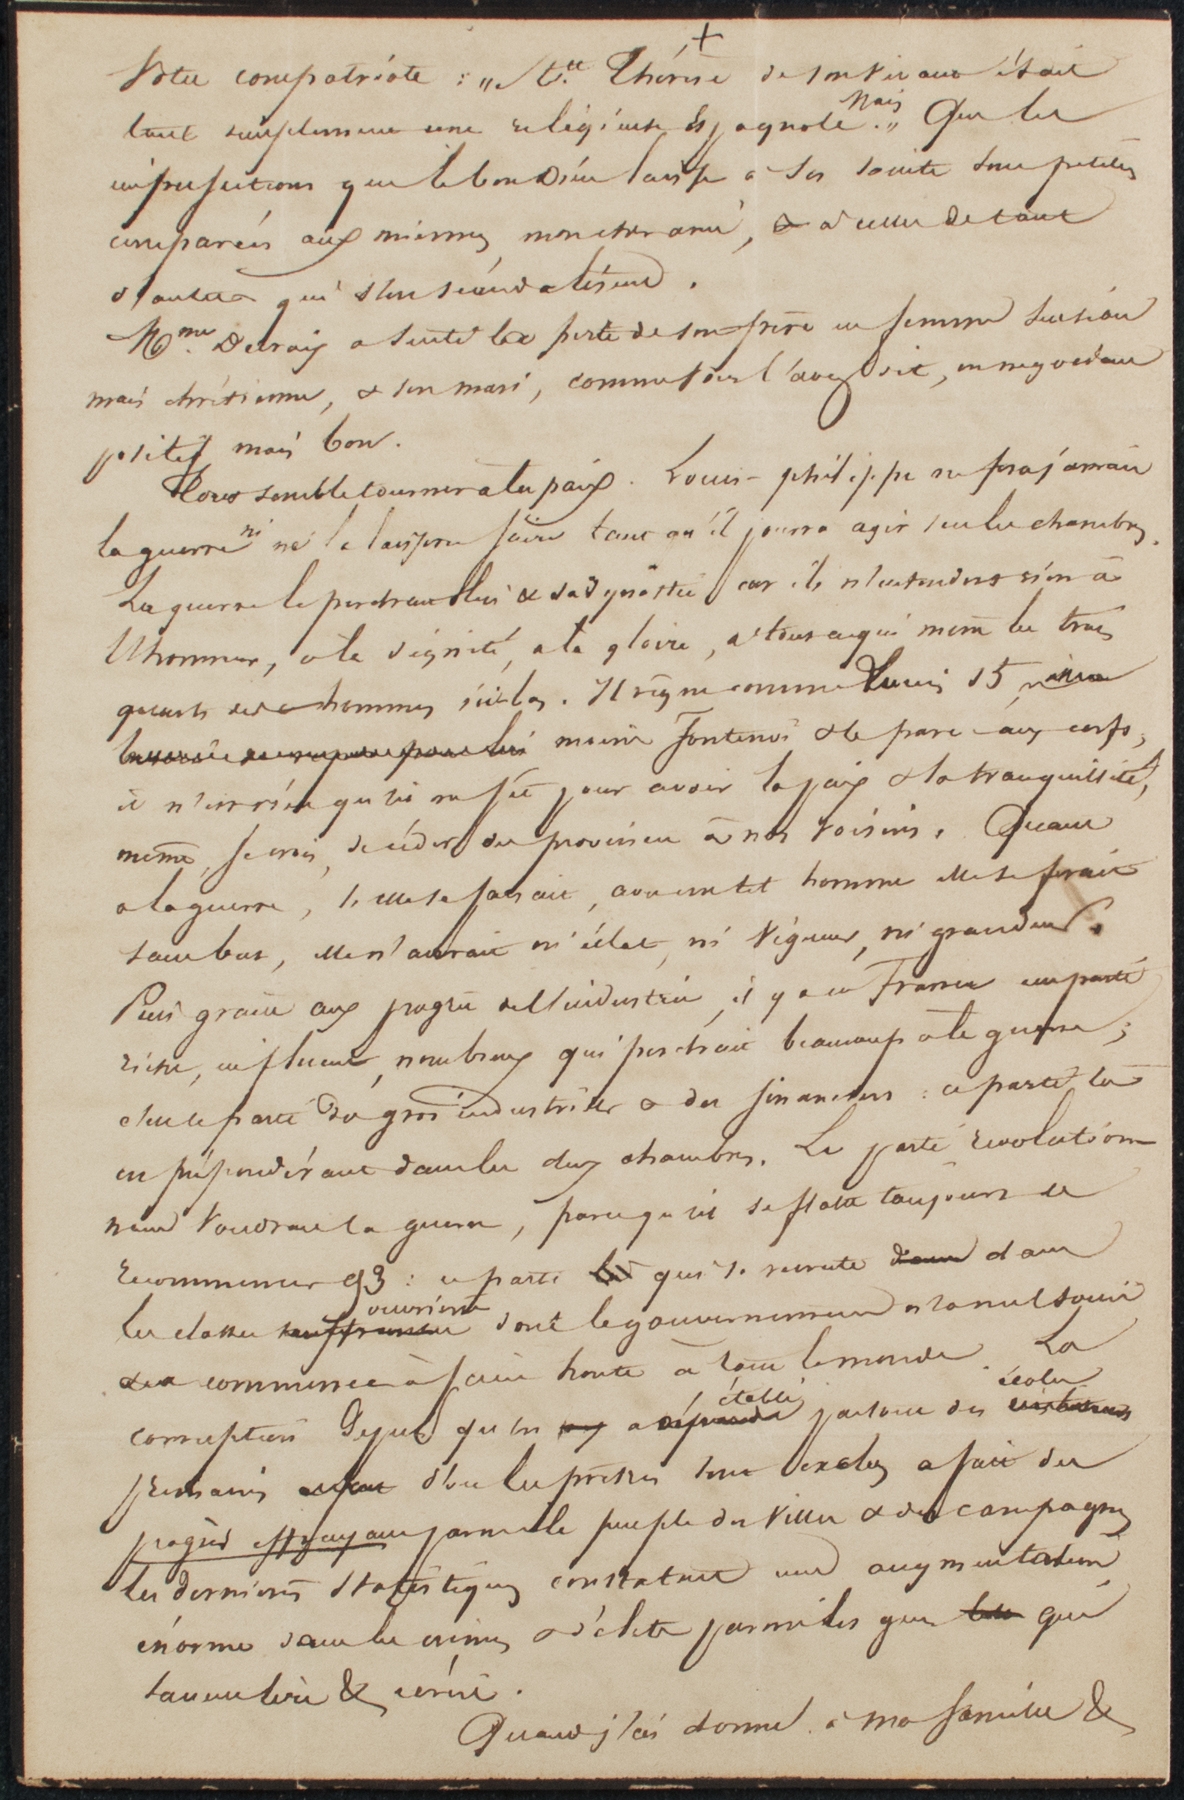 +
Votre compatriote : „ Ste Thérèse de son vivant était
tout simplement une religieuse Espagnole. „ Mais Que les
imperfections que le bon Dieu laisse à ses saints sont petites
comparées aux miennes, mon cher ami, & à celles de tant
d'autres qui s'en scandalisent.
Mme Delraix a senti la perte de son frère en femme
mais chrétienne, & son mari, comme vous l'avez dit, en négociant
positif mais bon.
Tout semble tourner à la paix. Louis-philippe ne fera jamais
la guerre ni ne la laissera faire tant qu'il pourra agir sur les chambres.
La guerre le perdrait lui & sa dynastie car ils n'entendent rien à
l'honneur, à la dignité, à la gloire, à tout ce qui mène les trois
quarts des hommes ici bas. Il règne comme Louis 15
moins Fontenoi & le parc aux cerfs,
il n'est rien qu'il ne fît pour avoir la paix & la tranquillité,
même, je crois, de céder des provinces à nos voisins. Quant
à la guerre, si elle se faisait, avec un tel homme elle se ferait
sans but, elle n'aurait ni éclat, ni vigueur, ni grandeur.
Puis grâce aux progrès de l'industrie, il y a en France un parti
riche, influent, nombreux qui perdrait beaucoup à la guerre;
c'est le parti des gros industriels & des financiers : ce parti là
est prépondérant dans les deux chambres. Le parti revolution-
naire voudrait la guerre, parce qu'il se flatte toujours de
recommencer 93 : ce parti là qui se recrute dans dans
les classes souffrantes ouvrières dont le gouvernement n'a nul souci
commence à faire honte à tout le monde. La
corruption depuis qu'on a répandu établi partout des écoles
primaires d'où les prêtres sont exclus a fait des
progrès effrayans parmi le peuple des villes & des campagnes
les dernières statistiques constatent une augmentation
énorme dans les crimes & délits parmi les gens qui
savent lire & écrire.
Quand j'ai donné à ma famille &